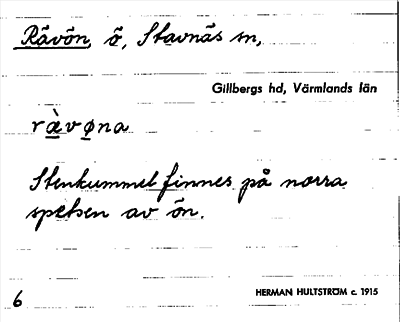 Rävön, ö, Stavnäs sn,
Gillbergs hd, Värmlands län
rä̀vøna
Stenkummel finnes på norra
spetsen av ön.
6
HERMAN HULTSTRÖM c. 1915